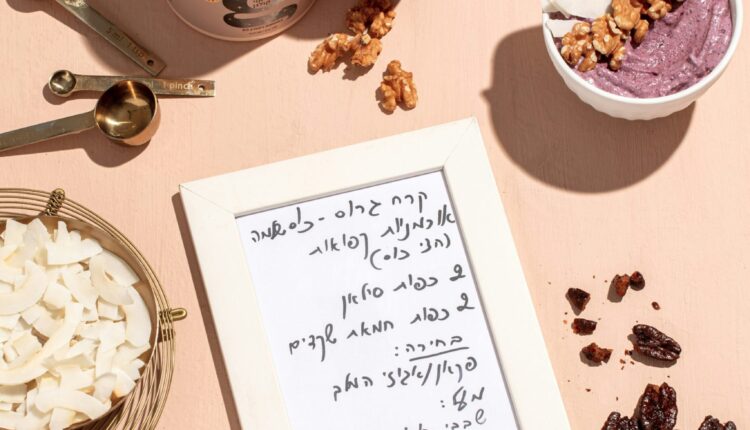 1 pinch
קרח גרוס - כוס שלמה
אוכמניות קפואות
(חצי כוס)
2 כפות סילאן
2 כפות חמאת שקדים
בחירה:
פקאן/אגוזי המלך
מעל:
שבבי